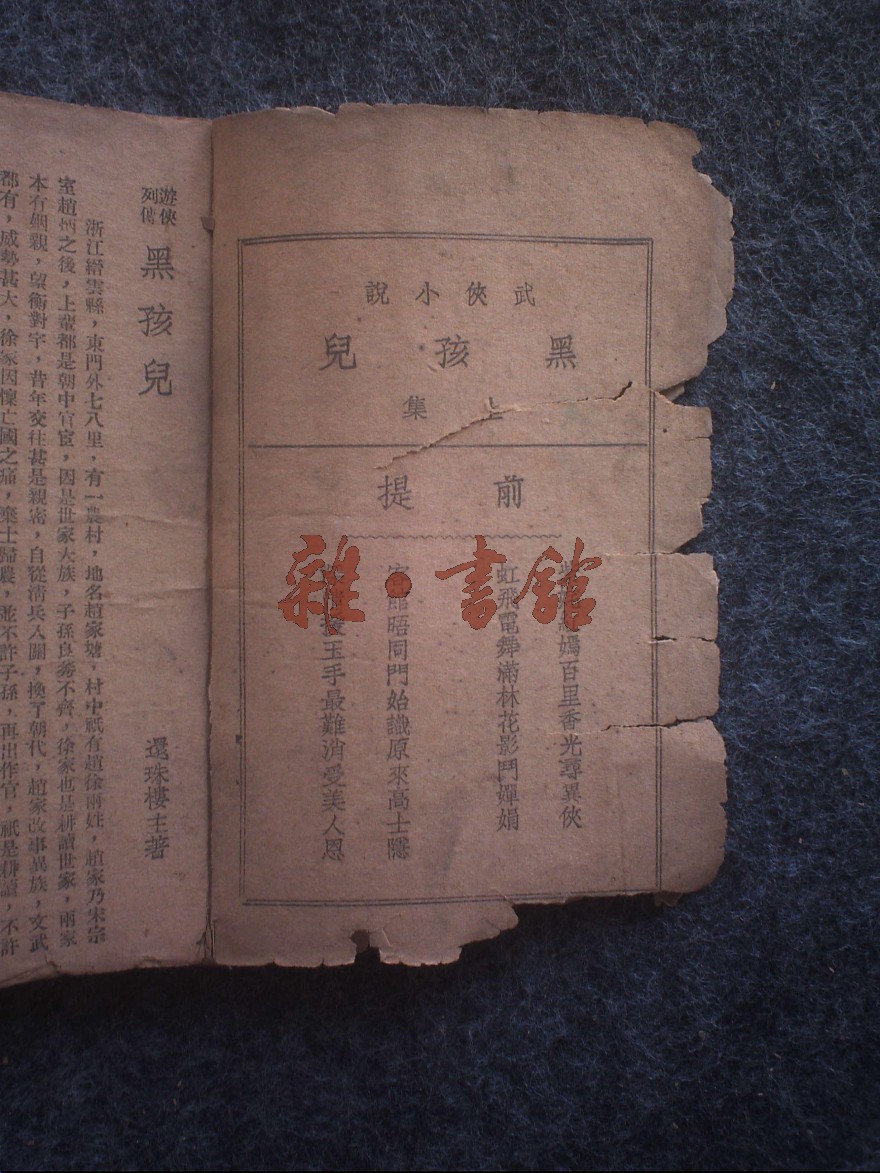 武俠小說
黑孩兒
上集
前提
嫣百里香光尋異俠
虹飛電舞滿林花影鬥嬋娟
館晤同門始識原來高士隱
玉手最難消受美人恩
雜·書館
遊俠列傳 黑孩兒 還珠樓主著
浙江縉雲縣，東門外七八里，有一農村，地名趙家壚，村中祇有趙徐兩姓，趙家乃宋宗
室趙炳之後，上輩都是朝中官宦，因是世家大族，子孫良莠不齊，徐家也是耕讀世家，兩家
本有姻親，望衡對宇，昔年交往甚是親密，自從清兵入關，換了朝代，趙家改事異族，文武
都有，威勢甚大，徐家因懷亡國之痛，棄士歸農，並不許子孫，再出作官，祇是耕讀，不許